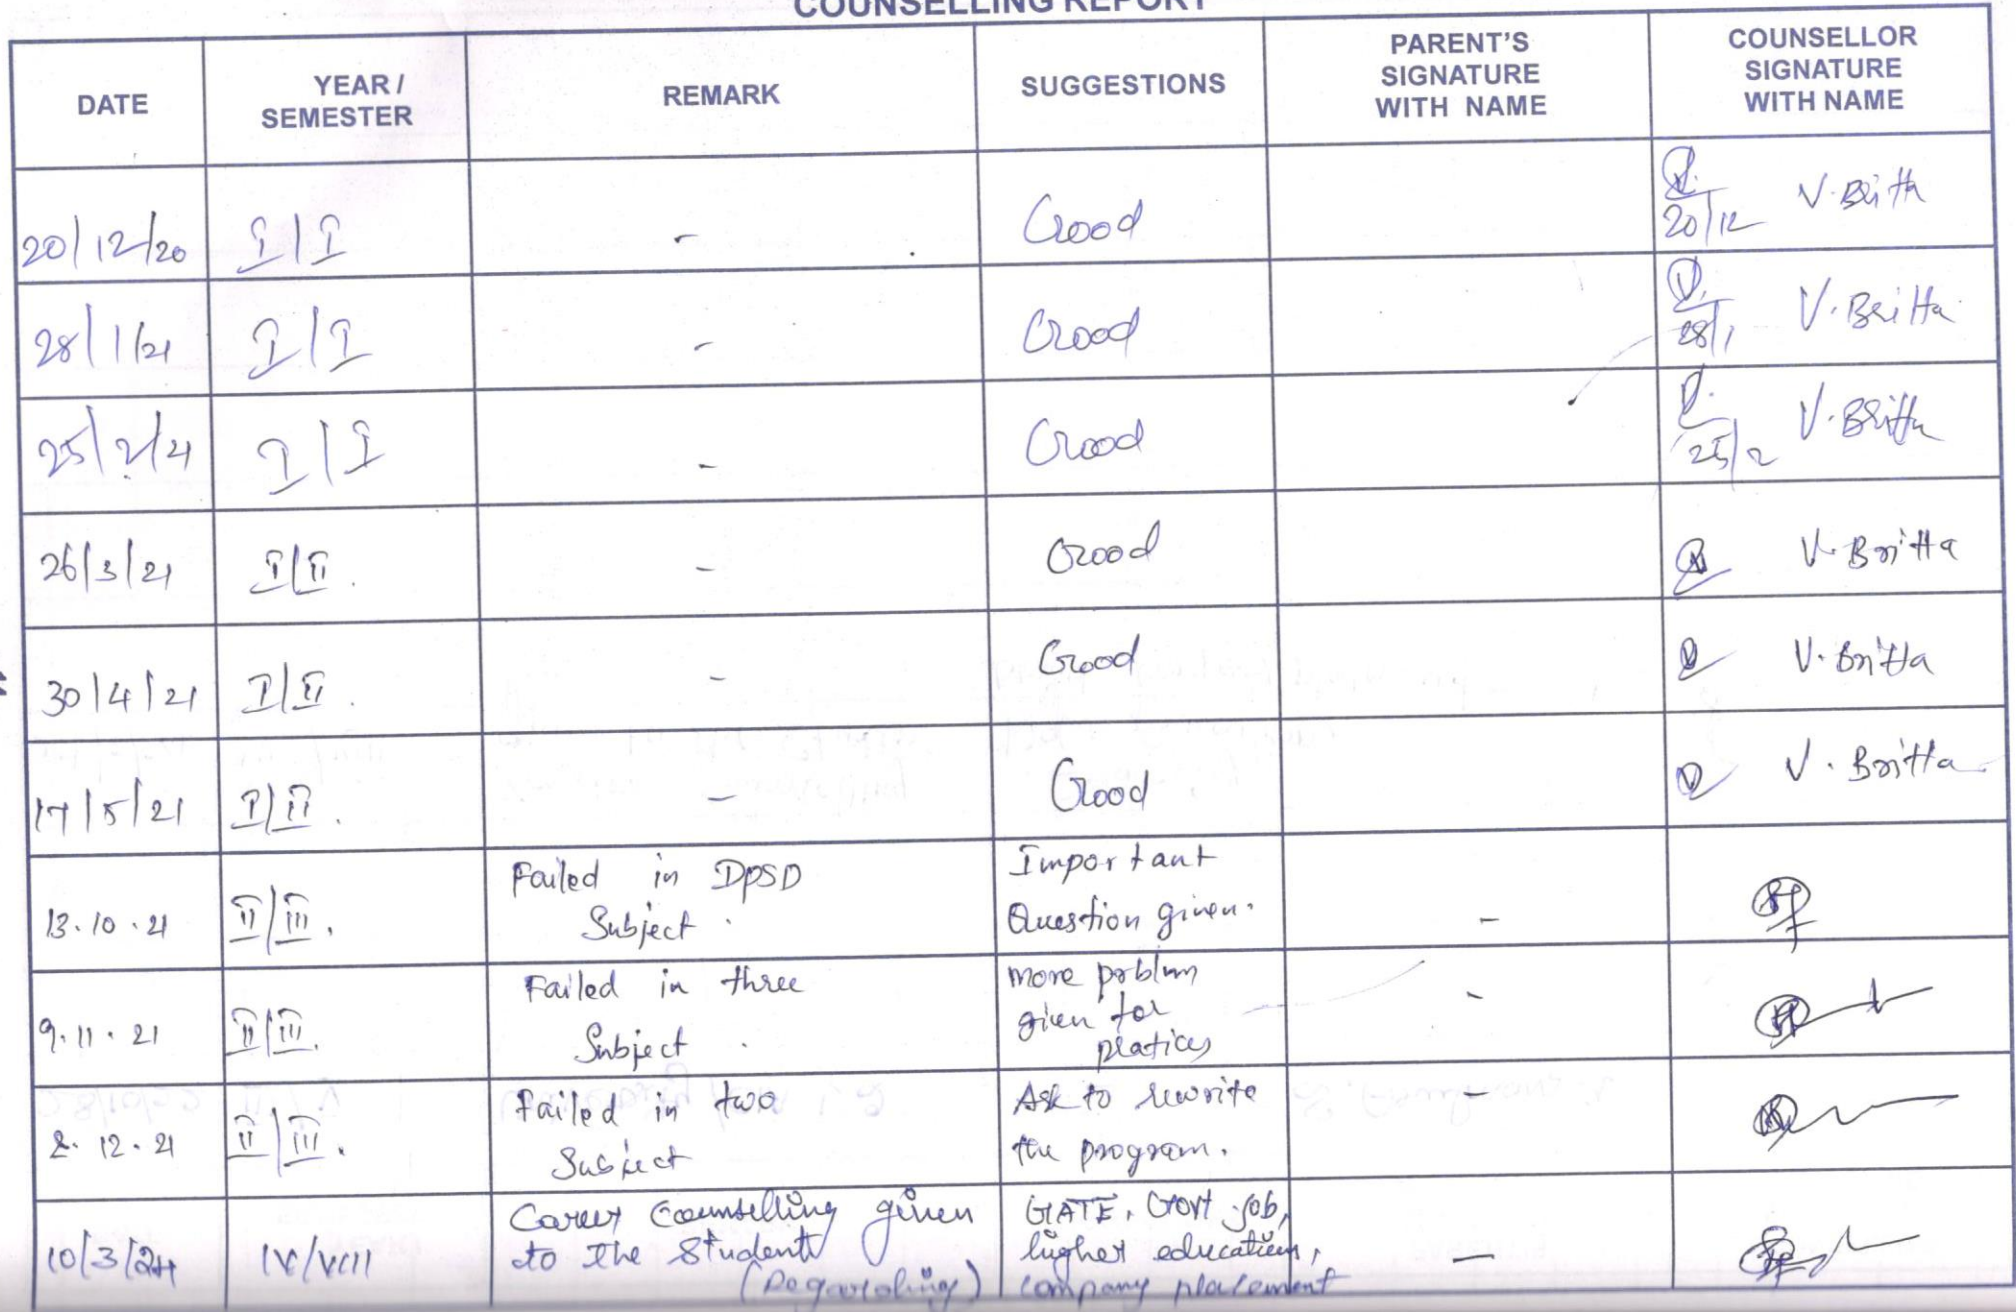 COUNSELLING REPORT
DATE
YEAR /
SEMESTER
REMARK
SUGGESTIONS
PARENT'S
SIGNATURE
WITH NAME
COUNSELLOR
SIGNATURE
WITH NAME
20/12/20 I/I - Good 20/12 V. Britta
28/1/21 I/I - Good 28/1 V. Britta
25/2/21 I/I - Good 25/2 V. Britta
26/3/21 I/II. - Good V. Britta
30/4/21 I/II. - Good V. Britta
17/5/21 I/II. - Good V. Britta
13.10.21 II/III.
Failed in DPSD
Subject.
Important
Question given.
-
9.11.21 II/III.
Failed in three
Subject.
more porblum
given for
platices
-
8.12.21 II/III.
Failed in two
Subject
Ask to rewrite
the program.
-
10/3/24 IV/VIII
Career Counselling given
to the Student
(Regarding)
GATE, Govt job,
higher education,
company placement
-